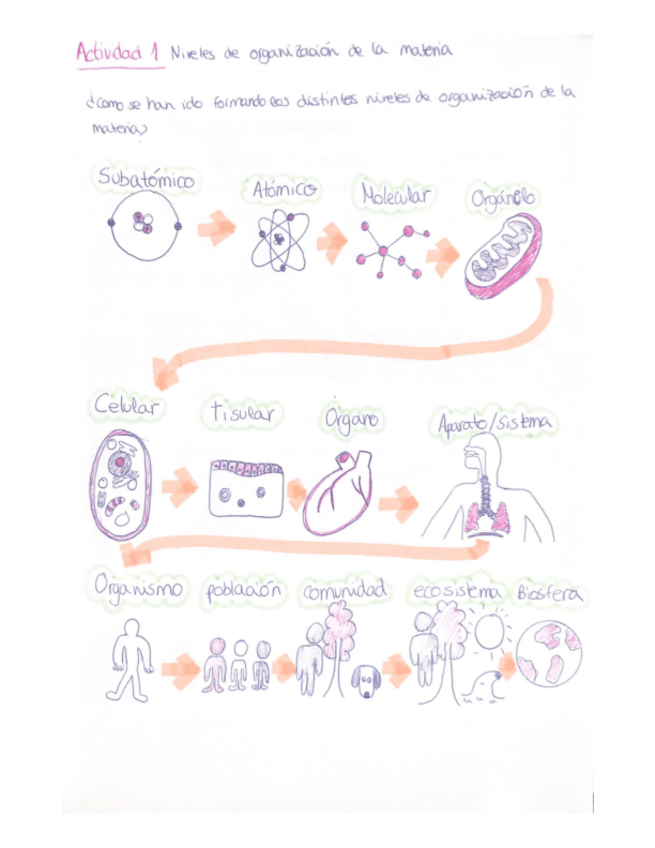 Actividad 1 Niveles de organización de la materia
¿Como se han ido formando los distintos niveles de organización de la
materia?
Subatómico Atómico Molecular Orgánelo
Celular tisular Organo Aparato/sistema
Organismo población comunidad ecosistema Biosfera